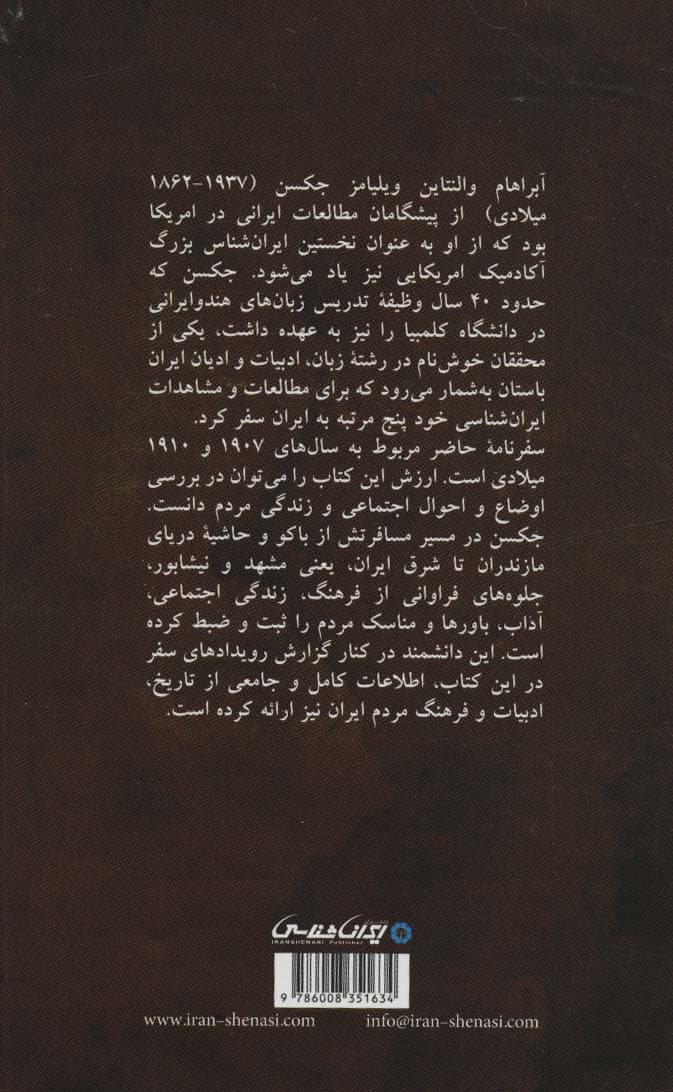 آبراهام والنتاین ویلیامز جکسن (۱۹۳۷-۱۸۶۲
میلادی) از پیشگامان مطالعات ایرانی در امریکا
بود که از او به عنوان نخستین ایران‌شناس بزرگ
آکادمیک امریکایی نیز یاد می‌شود. جکسن که
حدود ۴۰ سال وظیفهٔ تدریس زبان‌های هندوایرانی
در دانشگاه کلمبیا را نیز به عهده داشت، یکی از
محققان خوش‌نام در رشتهٔ زبان، ادبیات و ادیان ایران
باستان به‌شمار می‌رود که برای مطالعات و مشاهدات
ایران‌شناسی خود پنج مرتبه به ایران سفر کرد.
سفرنامهٔ حاضر مربوط به سال‌های ۱۹۰۷ و ۱۹۱۰
میلادی است. ارزش این کتاب را می‌توان در بررسی
اوضاع و احوال اجتماعی و زندگی مردم دانست.
جکسن در مسیر مسافرتش از باکو و حاشیهٔ دریای
مازندران تا شرق ایران، یعنی مشهد و نیشابور،
جلوه‌های فراوانی از فرهنگ، زندگی اجتماعی،
آداب، باورها و مناسک مردم را ثبت و ضبط کرده
است. این دانشمند در کنار گزارش رویدادهای سفر
در این کتاب، اطلاعات کامل و جامعی از تاریخ،
ادبیات و فرهنگ مردم ایران نیز ارائه کرده است.
ایرانشناسی
IRANSHENASI Publisher
9 786008 351634
www.iran-shenasi.com info@iran-shenasi.com